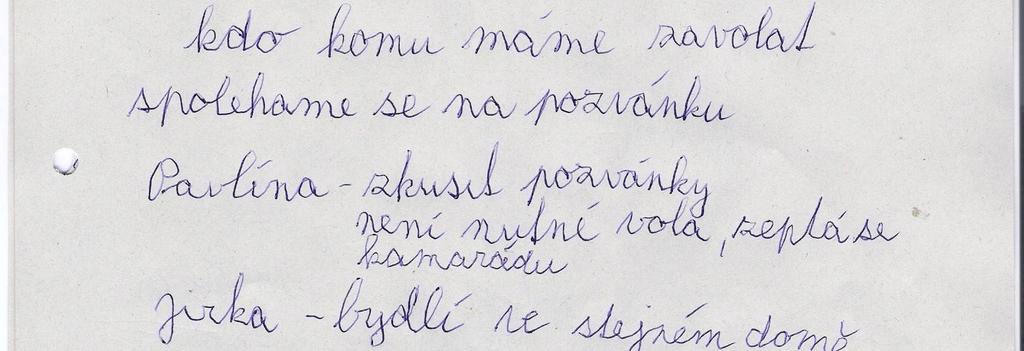 kdo komu máme zavolat
spolehame se na pozvánku
Pavlína - zkusit pozvánky
není nutné volá, zeptá se
kamarádu
Jirka - bydlí ve stejném domě